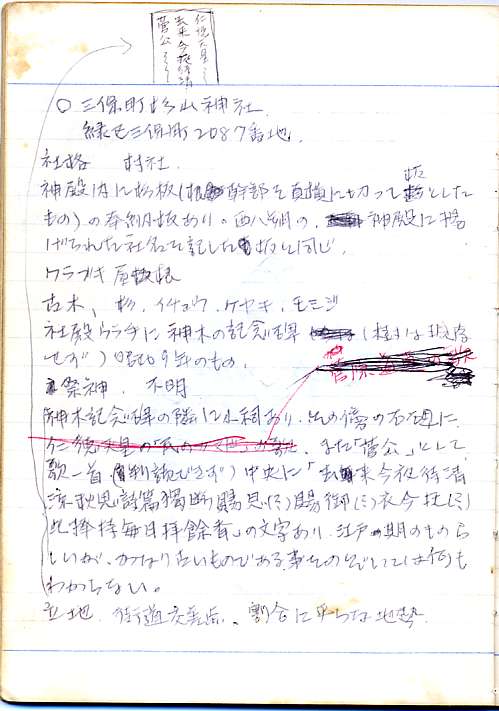 仁徳天皇
去来今夜待清
菅公
○三保町杉山神社
緑区三保町2087番地
社格 村社
神殿内に杉板(根幹部を真横に切って板とした
もの)の奉納板あり。西八朔の、神殿に掲
げられた社名を記した板と同じ。
カワラブキ 屋根
古木、杉、イチョウ、ケヤキ、モミジ
社殿ウラテに神木の記念碑(樹は現存
せず)昭和9年のもの。
菅原道真の歌
祭神 不明
神木記念碑の隣に小祠あり、その傍の石碑に
仁徳天皇の「民のかまど」の歌、また「菅公」として
歌一首(判読できず)中央に「去来今夜待清
涼秋思詩篇獨断腸恩(シ)賜御(シ)衣今在(シ)
此捧持毎日拝餘香」の文字あり、江戸期のものら
しいが、かなり古いものである事をのぞいては何も
わからない。
立地 街道交差点、割合に平らな地勢